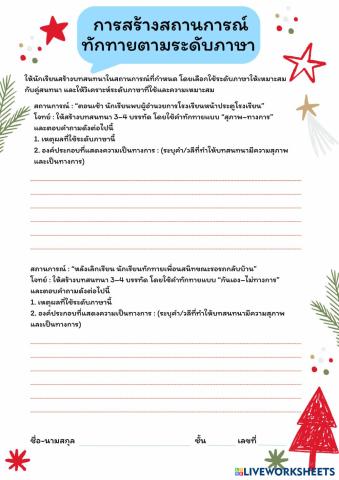 การสร้างสถานการณ์
ทักทายตามระดับภาษา
ให้นักเรียนสร้างบทสนทนาในสถานการณ์ที่กำหนด โดยเลือกใช้ระดับภาษาให้เหมาะสม
กับคู่สนทนา และให้วิเคราะห์ระดับภาษาที่ใช้และความเหมาะสม
สถานการณ์ : "ตอนเช้า นักเรียนพบผู้อำนวยการโรงเรียนหน้าประตูโรงเรียน"
โจทย์ : ให้สร้างบทสนทนา 3-4 บรรทัด โดยใช้คำทักทายแบบ "สุภาพ-ทางการ"
และตอบคำถามดังต่อไปนี้
1. เหตุผลที่ใช้ระดับภาษานี้
2. องค์ประกอบที่แสดงความเป็นทางการ : (ระบุคำ/วลีที่ทำให้บทสนทนามีความสุภาพ
และเป็นทางการ)
สถานการณ์ : "หลังเลิกเรียน นักเรียนทักทายเพื่อนสนิทขณะรอรถกลับบ้าน"
โจทย์ : ให้สร้างบทสนทนา 3-4 บรรทัด โดยใช้คำทักทายแบบ "กันเอง-ไม่ทางการ"
และตอบคำถามดังต่อไปนี้
1. เหตุผลที่ใช้ระดับภาษานี้
2. องค์ประกอบที่แสดงความเป็นทางการ : (ระบุคำ/วลีที่ทำให้บทสนทนามีความสุภาพ
และเป็นทางการ)
ชื่อ-นามสกุล ชั้น เลขที่
LIVEWORKSHEETS